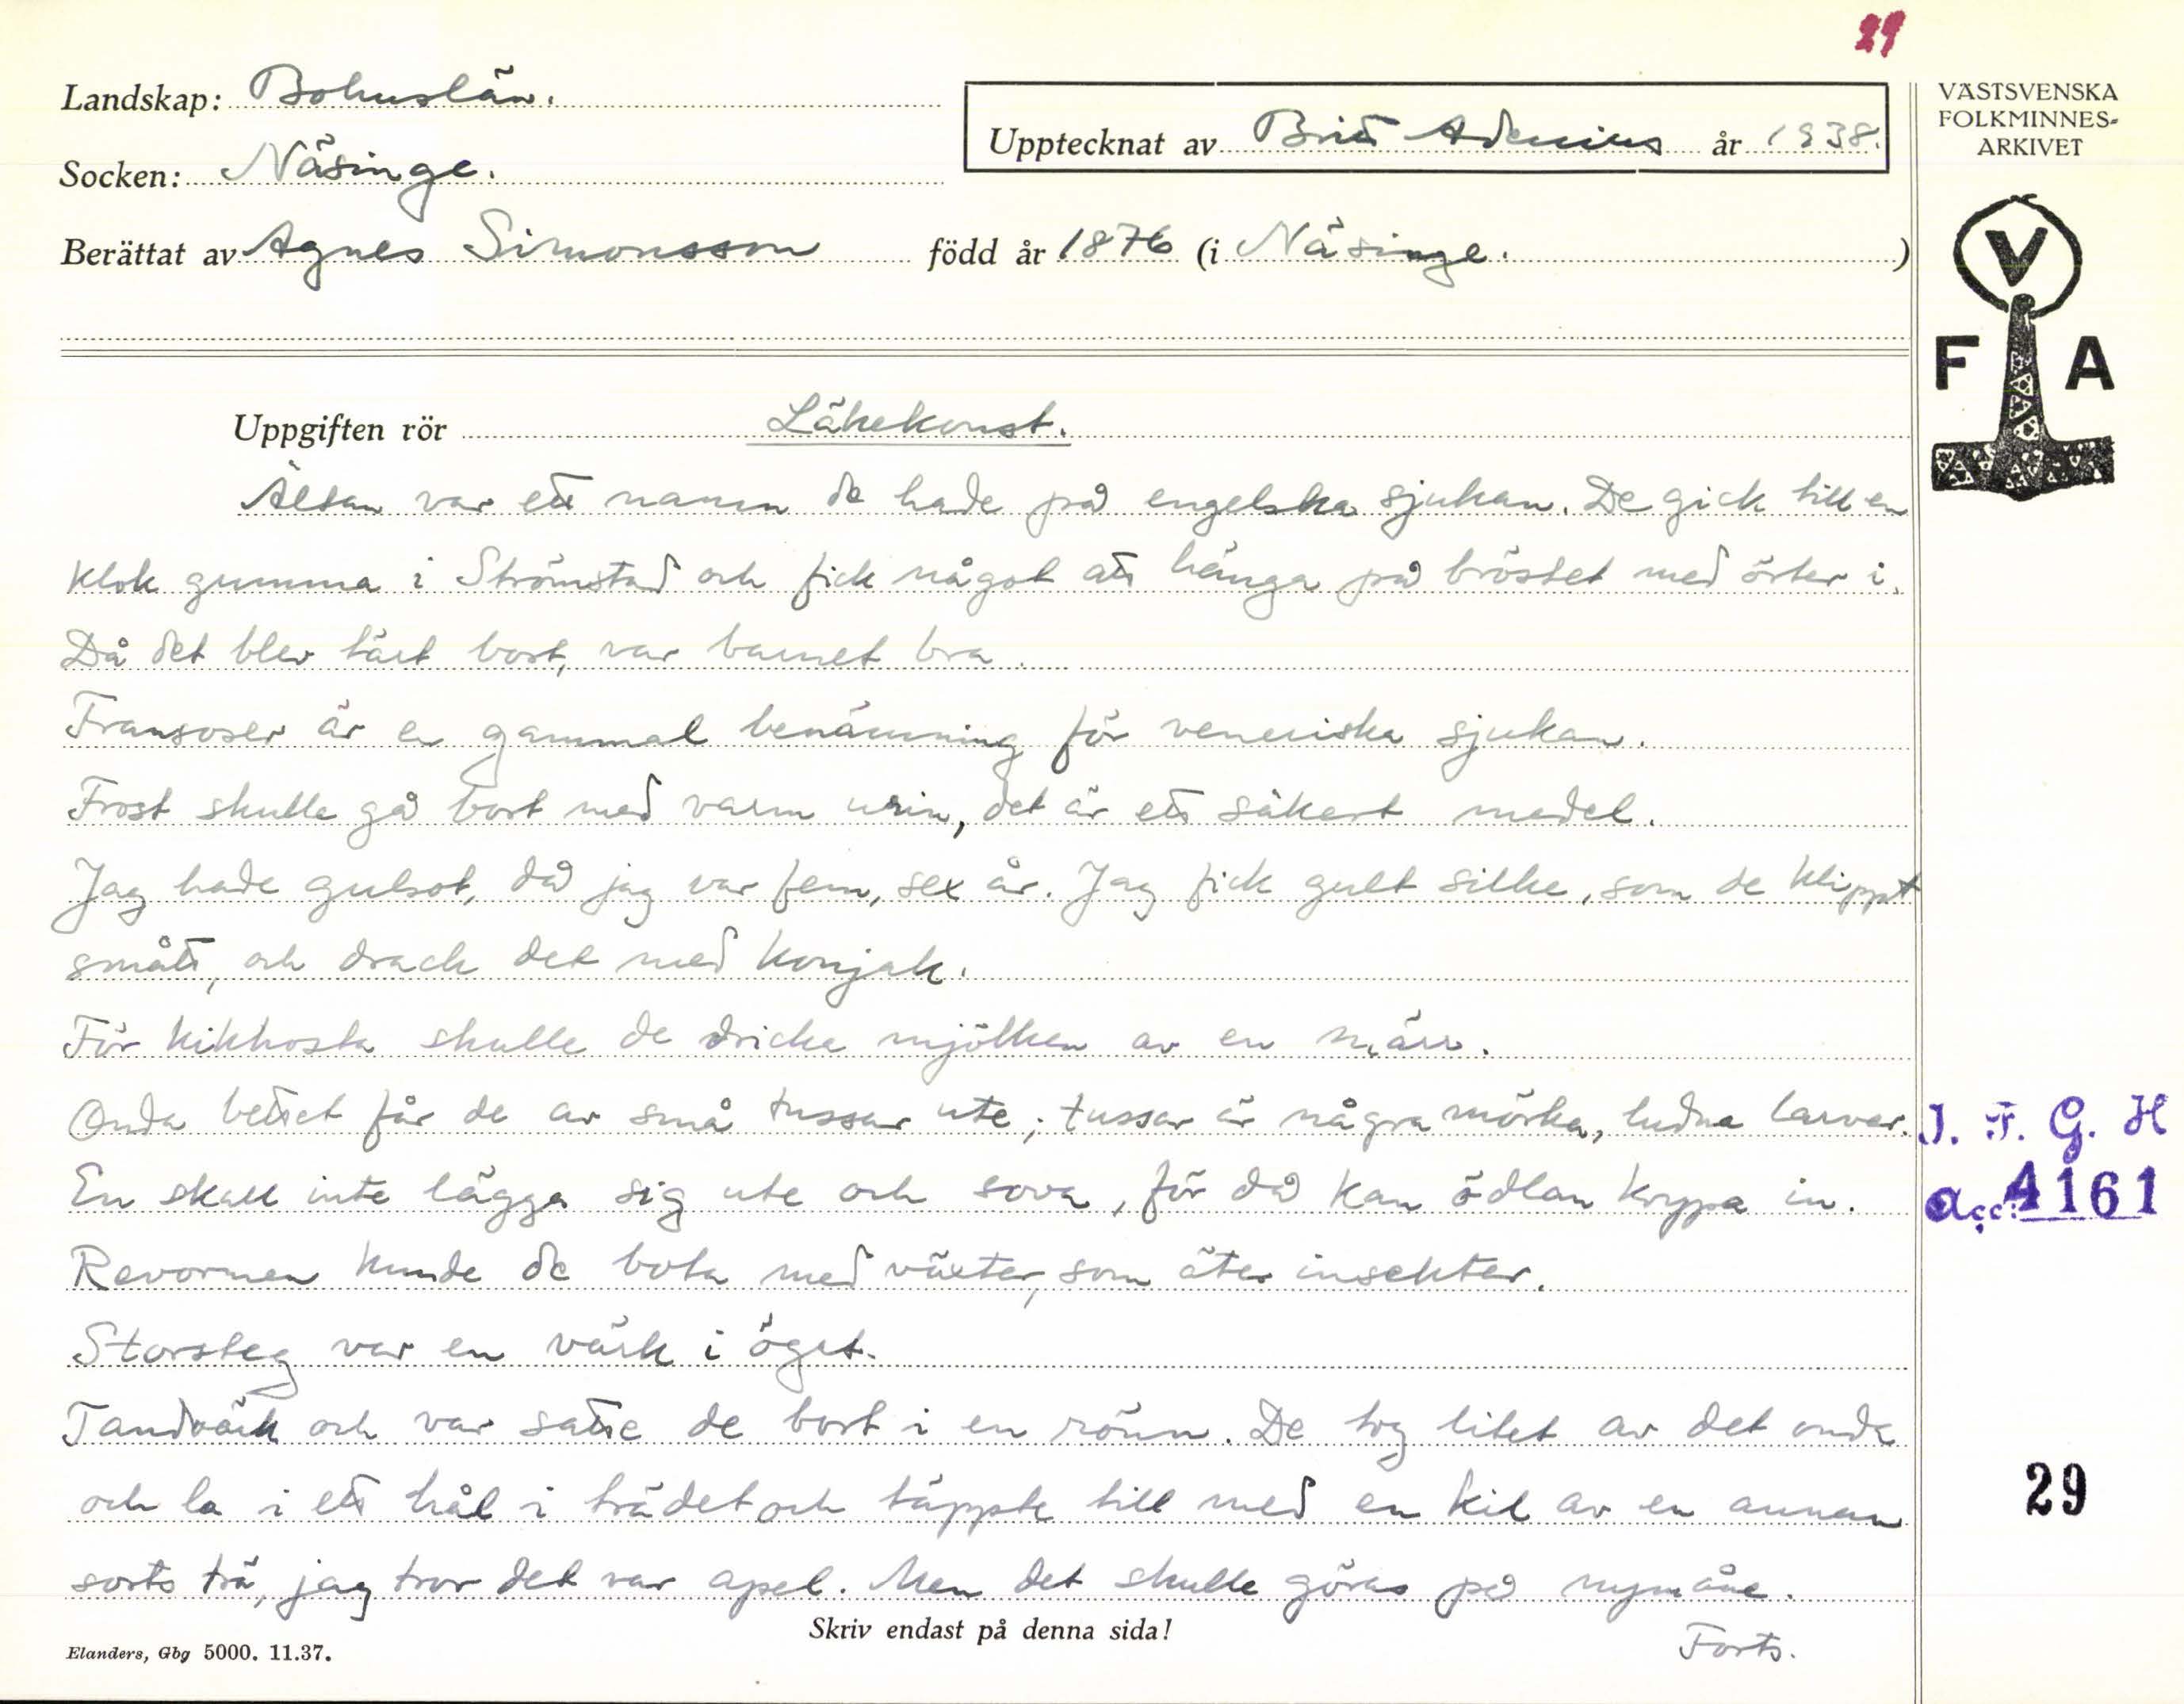 29
Landskap: Bohuslän.
Upptecknat av Brita Adenius år 1938.
Socken: Näsinge.
Berättat av Agnes Simonsson född år 1876 (i Näsinge.)
VÄSTSVENSKA
FOLKMINNES-
ARKIVET
V
F A
Uppgiften rör Läkekonst.
Ältan var ett namn de hade på engelska sjukan. De gick till en
klok gumma i Strömstad och fick något att hänga på bröstet med örter i.
Då det blev tärt bort, var barnet bra.
Fransoser är en gammal benämning för veneriska sjukan.
Frost skulle gå bort med varm urin, det är ett säkert medel.
Jag hade gulsot, då jag var fem, sex år. Jag fick gult silke, som de klippt
smått, och drack det med konjak.
För kikhosta skulle de dricka mjölken av en märr.
Onda bettet får de av små tussar ute; tussar är några mörka, ludna larver.
En skall inte lägga sig ute och sova, för då kan ödlan krypa in.
Revormen kunde de bota med växter, som äter insekter.
Storsteg var en värk i öget.
Tandvärk och var satte de bort i en rönn. De tog litet av det onda
och la i ett hål i trädet och täppte till med en kil av en annan
sorts trä, jag tror det var apel. Men det skulle göras på nymåne.
Forts.
Skriv endast på denna sida!
Elanders, Gbg 5000. 11.37.
I. F. G. H
Acc: 4161
29